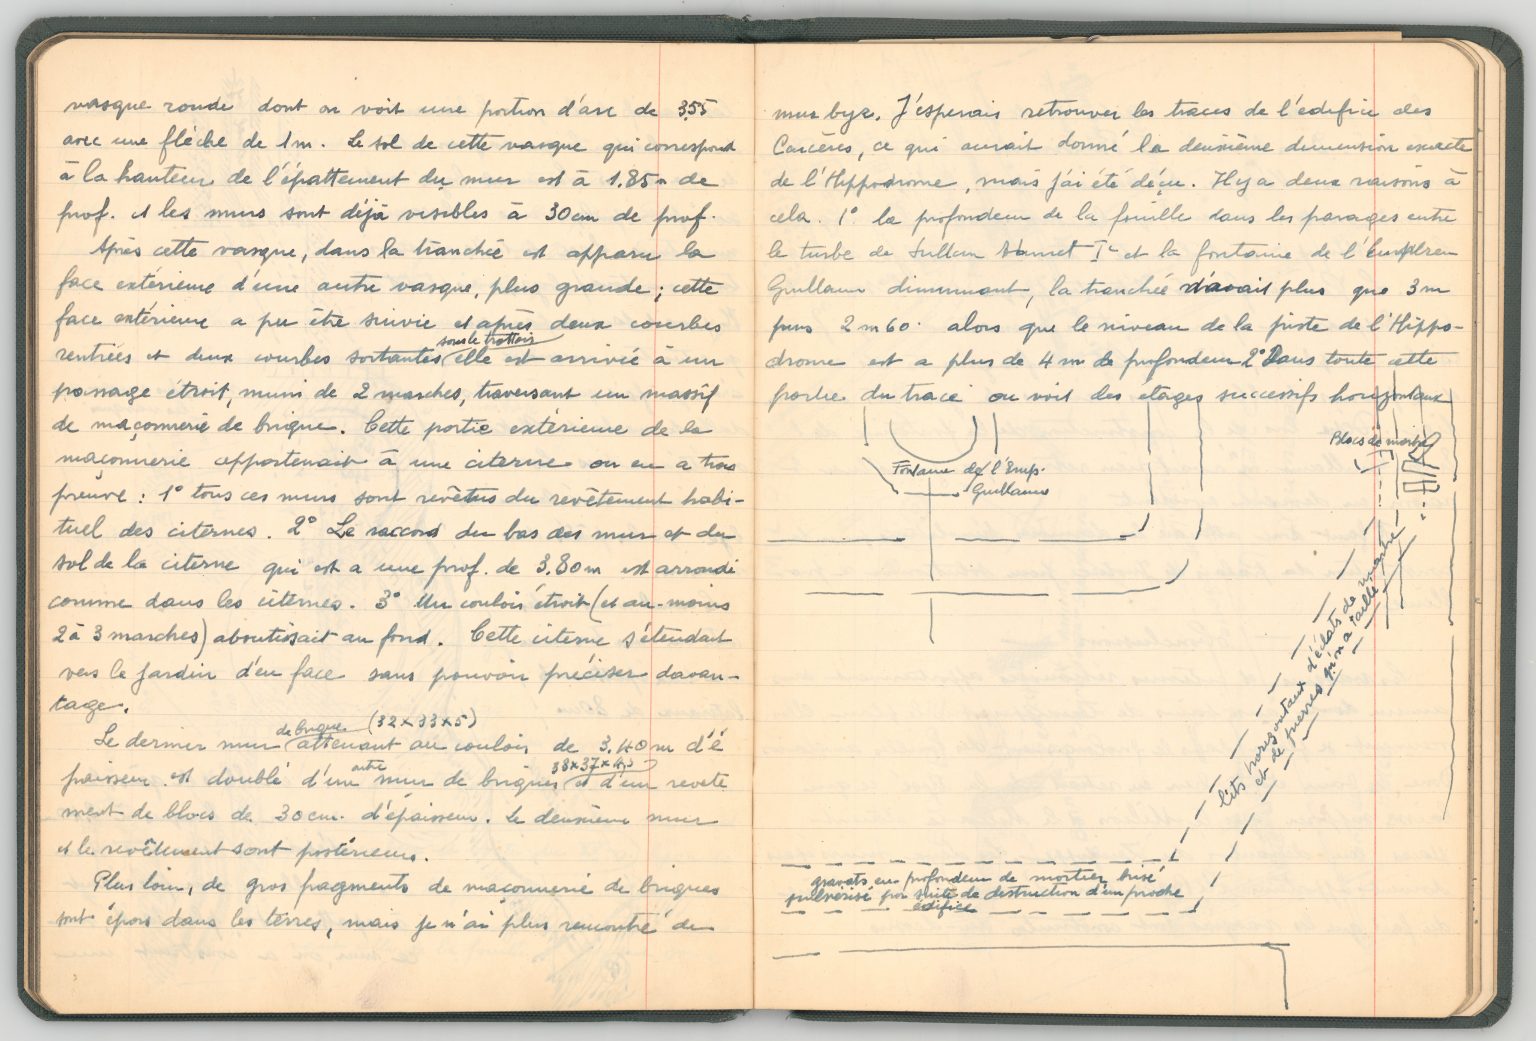 vasque ronde dont on voit une portion d'arc de 3.55
avec une flèche de 1m. Le sol de cette vasque qui correspond
à la hauteur de l'épattement du mur est à 1.85m de
prof. et les murs sont déjà visibles à 30cm de prof.
Après cette vasque, dans la tranchée est apparu la
face extérieure d'une autre vasque, plus grande ; cette
face extérieure a pu être suivie et après deux courbes
sous le trottoir
rentrées et deux courbes sortantes elle est arrivée à un
passage étroit, muni de 2 marches, traversant un massif
de maçonnerie de brique. Cette partie extérieure de la
maçonnerie appartenait à une citerne on en a trois
preuve : 1° tous ces murs sont revêtus du revêtement habi-
tuel des citernes. 2° Le raccord du bas des murs et du
sol de la citerne qui est a une prof. de 3.80m est arrondi
comme dans les citernes. 3° Un couloir étroit (et au moins
2 à 3 marches) aboutissait au fond. Cette citerne s'étendait
vers le jardin d'en face sans pouvoir préciser davan-
tage.
de brique (32x33x5)
Le dernier mur attenant au couloir de 3.40m d'é
autre 38x37x4,5
paisseur est doublé d'un mur de briques et d'un revete
ment de blocs de 30cm. d'épaisseur. Le deuxième mur
et le revêtement sont postérieurs.
Plus loin, de gros fragments de maçonnerie de briques
sont épars dans les terres, mais je n'ai plus rencontré de
mur byz. J'esperais retrouver les traces de l'edifice des
Carcères, ce qui aurait donné la deuxième dimension exacte
de l'Hippodrome, mais j'ai été déçu. Il y a deux raisons à
cela. 1° la profondeur de la fouille dans les parages entre
le turbe de Sultan Ahmet Ier et la fontaine de l'Empereur
Guillaume diminuant, la tranchée n'avait plus que 3m
puis 2m60. alors que le niveau de la piste de l'Hippo-
drome est a plus de 4m de profondeur 2° Dans toute cette
partie du tracé on voit des étages successifs horizontaux
Blocs de marbre
Fontaine de l'Emp.
Guillaume
lits horizontaux d'éclats de marbre
et de pierres
gravats en profondeur de mortier brisé
pulvérisé par suite de destruction d'un proche
édifice